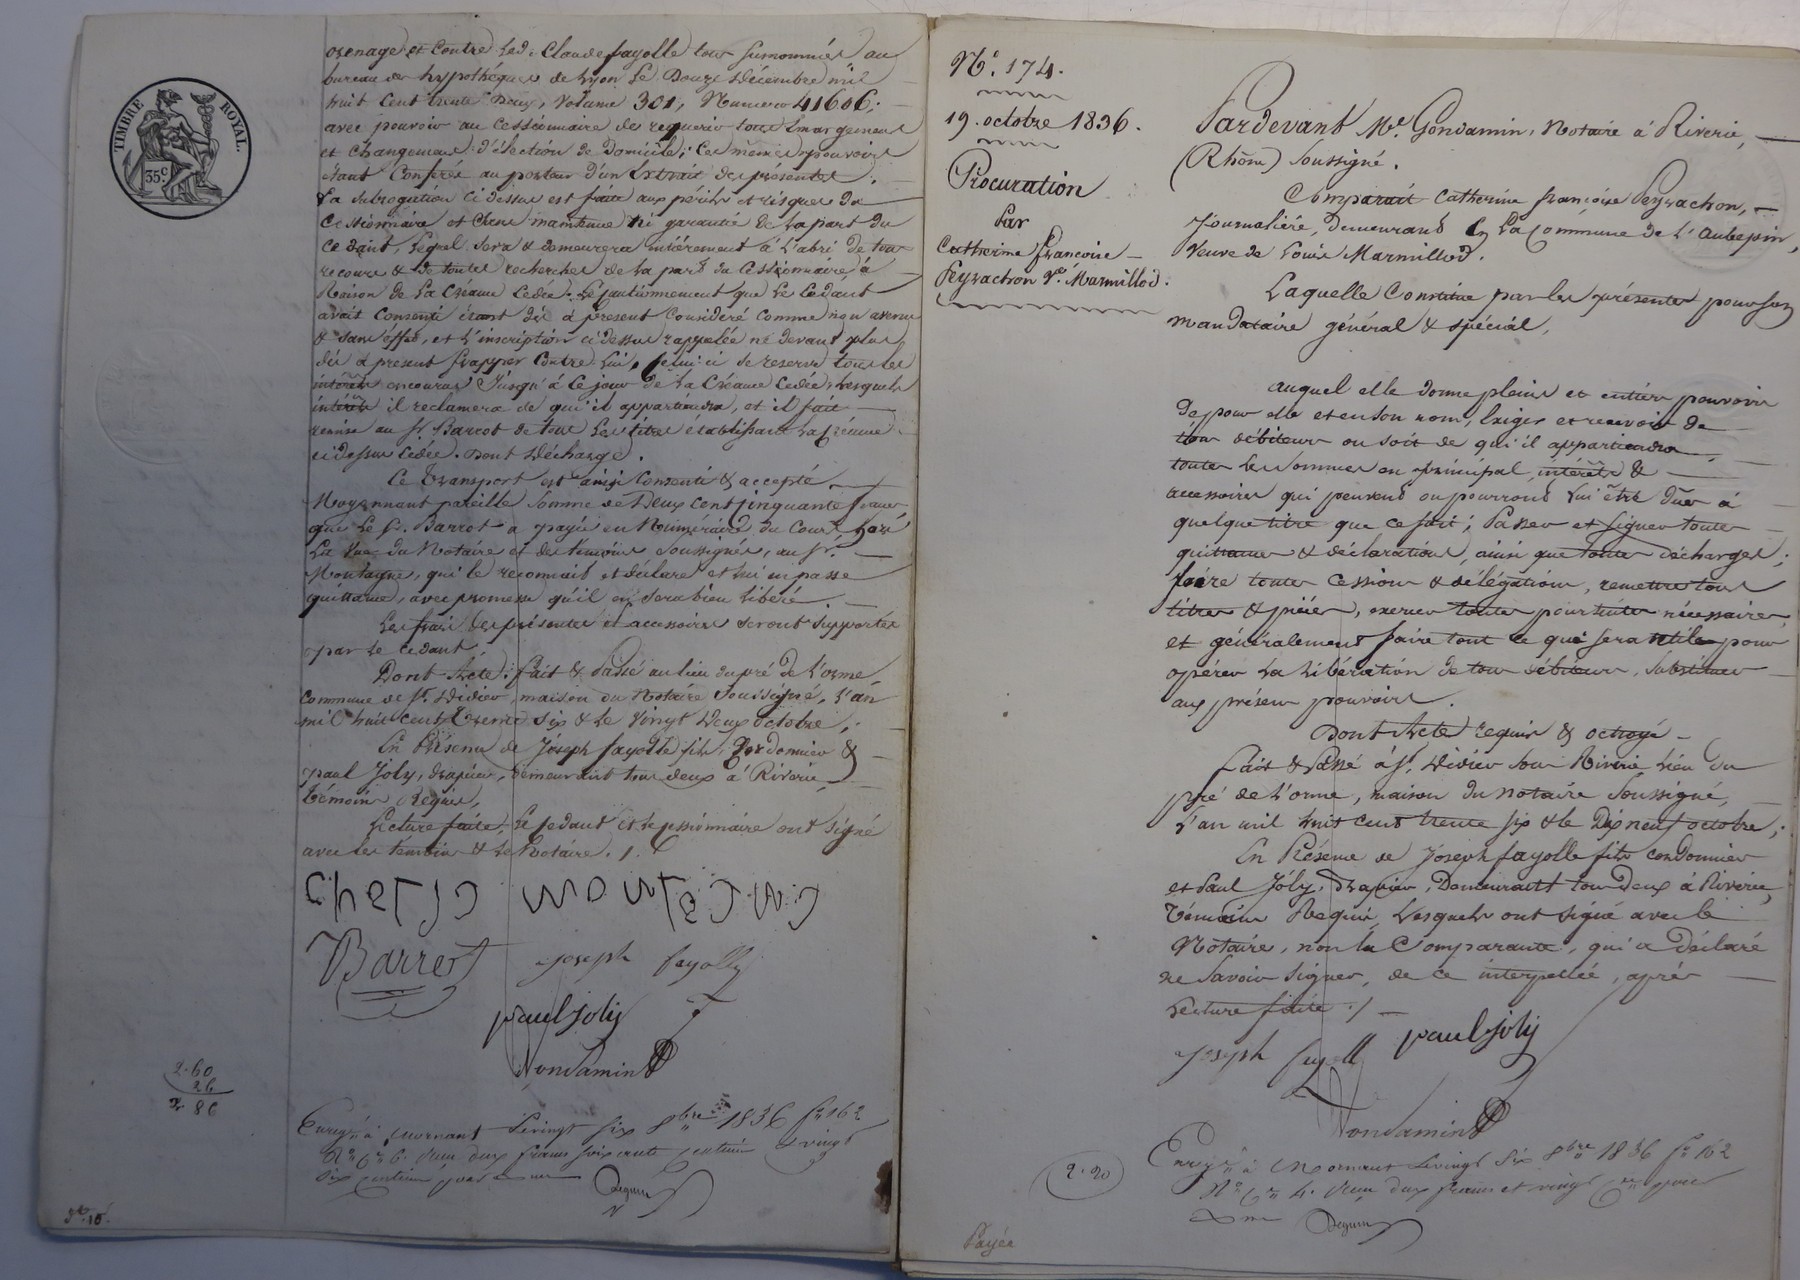 TIMBRE ROYAL.
35c
ozenage et contre led. Claude fayolle tous susnommés au
bureau des hypothéques de Lyon le Douze Décembre mil
huit cent trente Deux, volume 301, Numero 41606;
avec pouvoir au Cessionnaire de requerir tous Emargemens
et changemens d'élection de Domicile; ces mêmes pouvoirs
étant Conferés au porteur d'un Extrait des présentes.
La subrogation ci dessus est faite aux périls et risques du
Cessionnaire et sans maintenue ni garantie de la part du
cedant, lequel sera & demeurera entièrement à l'abri de tous
recours & de toutes recherches de la part du Cessionnaire, à
Raison de la Créance Cedée. Le Cautionnement que le Cedant
avait consenti étant dès à présent Considéré comme non avenu
& sans effet, et l'inscription ci dessus rappelée ne devant plus
dès à present frapper contre lui, celui ci se reserve tous les
intérêts encourus jusqu'à ce jour de la Créance cedée, lesquels
intérêts il reclamera de qui il appartiendra, et il fait
remise au Sr. Barrot de tous les titres établissant la Créance
ci dessus Cédée. Dont décharge.
Ce transport est ainsi Consenti & accepté
Moyennant pareille somme de Deux cent cinquante francs
que le Sr. Barrot a payée en Numéraire du Cours, hors
la vue du Notaire et des témoins soussignés, au Sr.
Montagne, qui le reconnait et déclare et lui en passe
quittance, avec promesse qu'il en sera bien libéré.
Les frais des présentes et accessoires seront supportés
par le cedant.
Dont Acte; fait & Passé au lieu du pré de l'orme,
commune de St. Didier, maison du Notaire soussigné, l'an
mil huit cent Trente six & le Vingt Deux octobre;
En Présence de Joseph fayolle fils, Cordonnier &
paul Joly, drapier, demeurant tous deux à Riverie,
témoins Requis.
Lecture faite, le Cedant et le Cessionnaire ont signé
avec les temoins & le Notaire ./.
Barrot
joseph fayolle
paul joly
Gondamin
2.60
26
2 86
Enregé. à Mornant le vingt six 8bre 1836 fo. 162
Ro. Ce. 6. Reçu deux francs soixante centimes & vingt
six centimes pour
Deguin
No. 174.
19. octobre 1836.
Procuration
Par
Catherine Françoise
Peyrachon Ve. Marmillod.
Pardevant Me. Gondamin, Notaire à Riverie,
(Rhône) soussigné.
Comparait Catherine françoise Peyrachon,
Journalière, Demeurant en la Commune de l'Aubepin,
Veuve de Louis Marmillod.
Laquelle Constitue par les présentes pour son
mandataire général & spécial,
auquel elle donne plein et entier pouvoir
de pour elle et en son nom, Exiger et recevoir de
tous débiteurs ou soit de qui il appartiendra
toutes les sommes en principal, intérêts &
accessoires qui peuvent ou pourront lui être dues à
quelque titre que ce soit; Passer et signer toutes
quittances & déclarations, ainsi que toutes décharges;
faire toutes cessions & délégations, remettre tous
titres & pièces, exercer toutes poursuites nécessaires,
et généralement faire tout ce qui sera utile pour
opérer la libération de tous débiteurs, Substituer
aux présens pouvoirs.
Dont Acte requis & octroyé
fait & Passé à St. Didier sous Riverie lieu du
pré de l'orme, maison du notaire soussigné,
l'an mil huit cent trente six & le Dix neuf octobre;
En Présence de Joseph fayolle fils cordonnier
et Paul Joly, drapier, Demeurant tous deux à Riverie,
témoins Requis, lesquels ont signé avec le
Notaire, non la Comparante, qui a déclaré
ne savoir signer, de ce interpellée, après
Lecture faite ./.
paul joly
joseph fayoll
Gondamin
2.20
Enregé. à Mornant le vingt six 8bre 1836 fo. 162
Ro. Ce. 4. Reçu deux francs et vingt ces. pour
Deguin
Payée